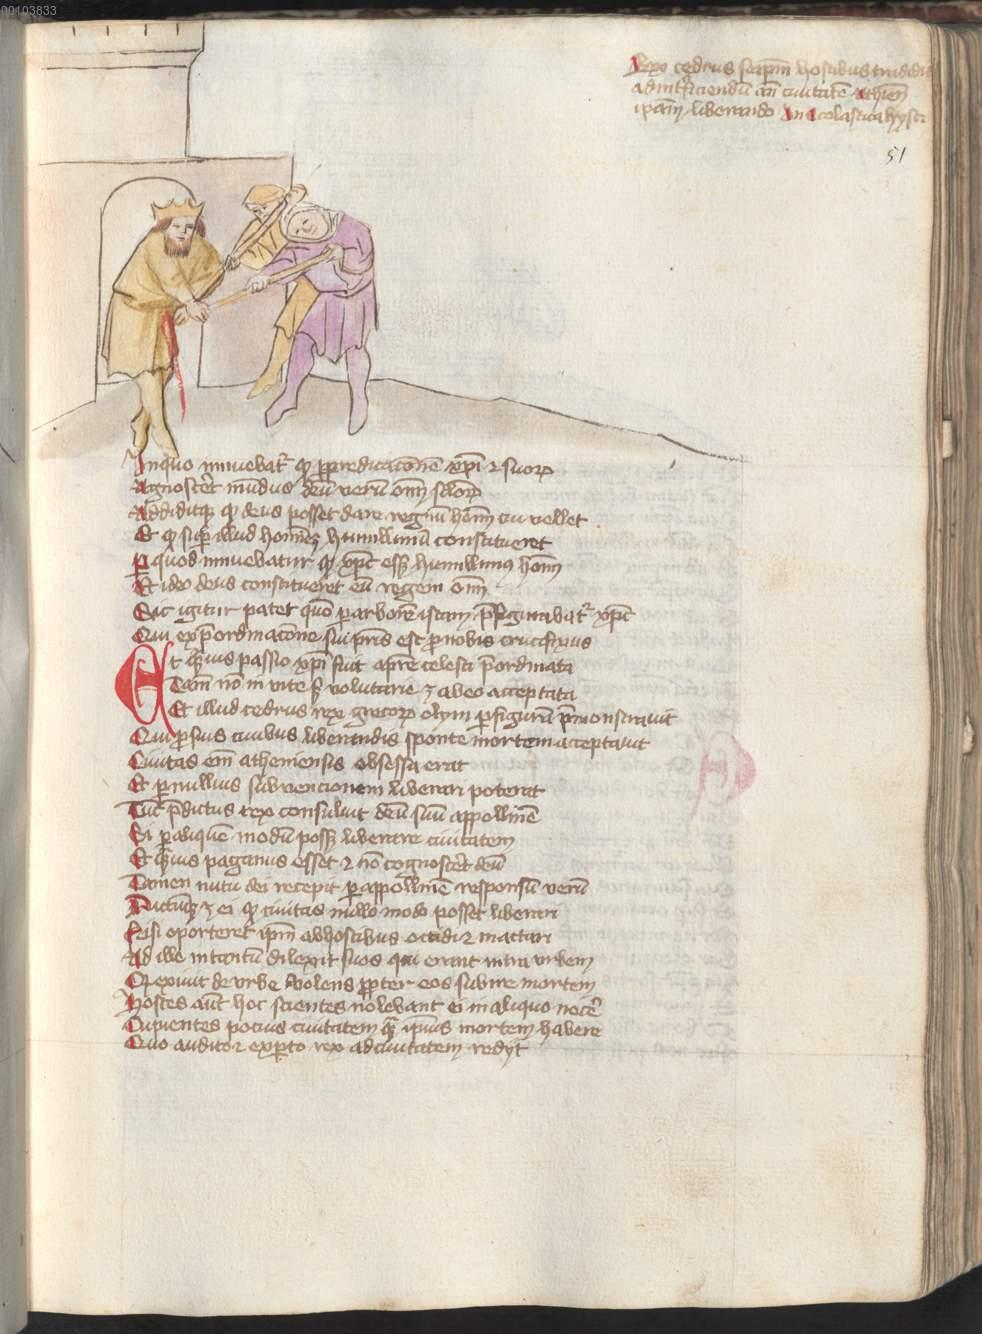 00103833
Rex cedrus seip̄m hostibus tradidit
ad int̄ficiendū an̄ ciuitatē Athien̄
ip̄am liberando In scolastica hyst
51
In quo innuebat̄ qꝫ p̄ predicacōnē xp̄i ⁊ suoꝝ
Agnoscēt mūdus deū verū om̄ scloꝝ
Addiditqꝫ qꝫ deus posset dare regnū hom̄ cui vellet
Et qꝫ sup̄ illud hoīem humillimū constitueret
Per quod innuebatur qꝫ xp̄c esset humillimus hom̄
Et ideo deus constitueret eū regem om̄
Sic igitur patet quō per arborē istam p̄figurabat̄ xp̄c
Qui ex p̄ordinacōne sui pr̄is est pro nobis crucifixus
Et qͣuis passio xp̄i fuit a pr̄e celesti p̄ordinata
Tam̄ nō inuite sꝫ voluntarie ÷ ab eo acceptata
Et illud cedrus rex grecoꝝ olym p̄ figurā p̄monstrauit
Qui pro suis ciuibus liberandis sponte mortem acceptauit
Ciuitas em̄ atheniensis obsessa erat
Et per nullius subuencionem liberari poterat
Tūc p̄dictus rex consuluit deū suū appollinē
Si per aliquē modū posset liberare ciuitatem
Et qͣuis paganus esset ⁊ nō cognoscēt deū
Tamen nutu dei recepit per appollinē responsū verū
Dictūqꝫ ÷ ei qꝫ ciuitas nullo modo posset liberari
Nisi oporteret ip̄m ab hostibus occidi ⁊ mactari
At ille in tantū dilexit suos qui erant intra vrbem
Qꝫ exiuit de vrbe volens propter eos subire mortem
Hostes aūt hoc scientes nolebant ei in aliquo nocēe
Cupientes pocius ciuitatem qͣ ipsius mortem habere
Quo audito ⁊ experto rex ad ciuitatem redijt